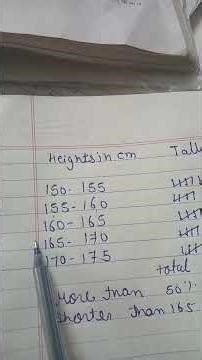 Heights in cm Tall
150- 155
155- 160
160- 165
165- 170
170- 175
total
More than 50%
Shorter than 165